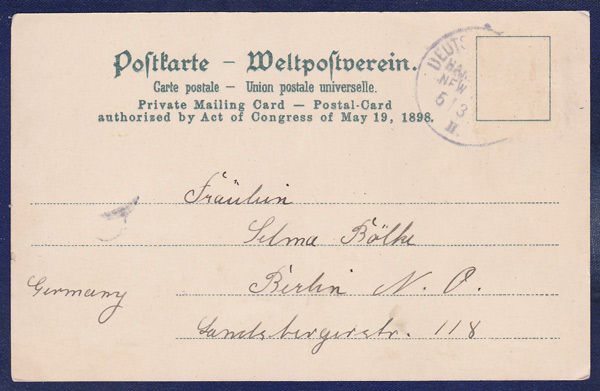 Postkarte – Weltpostverein.
Carte postale — Union postale universelle.
Private Mailing Card — Postal-Card
authorized by Act of Congress of May 19, 1898.
DEUTS
HA
NEW
5/3
II.
Fräulein
Selma Bölke
Berlin N. O.
Germany
Landsbergerstr. 118